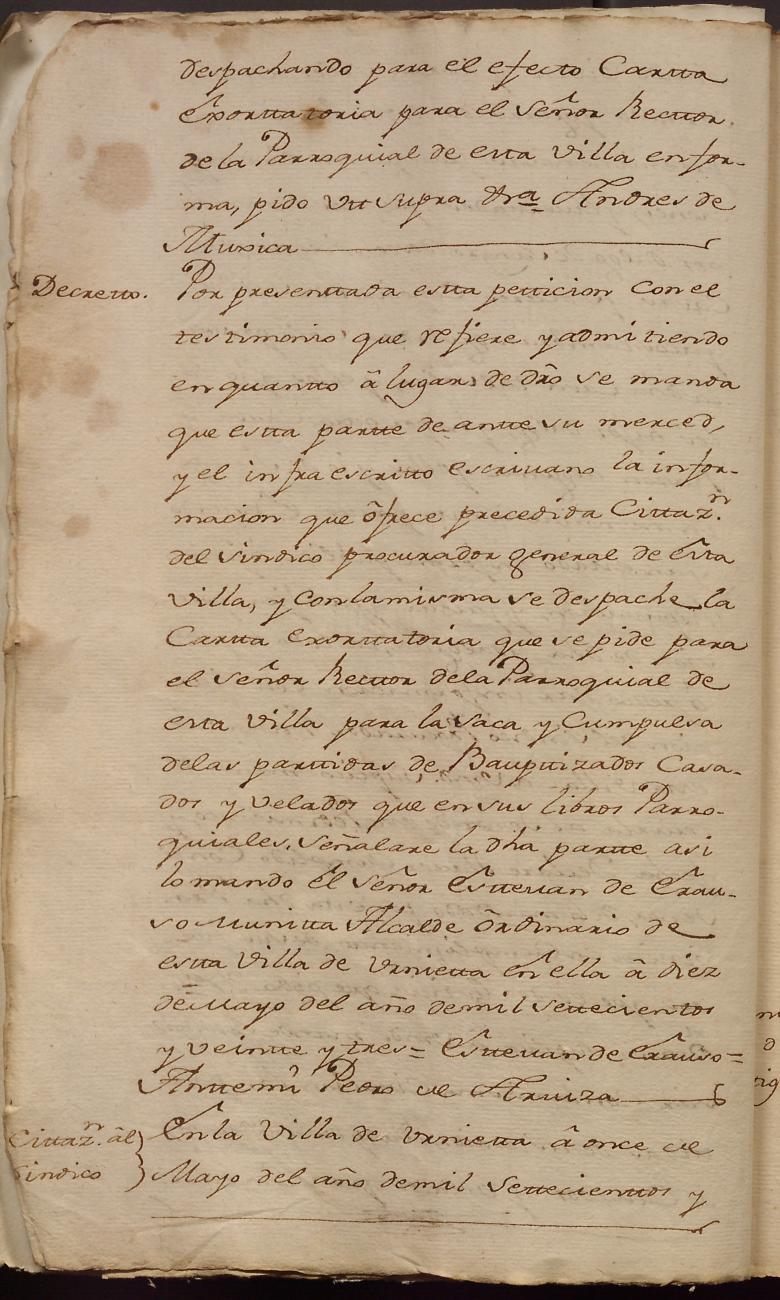 despachando para el efecto Cartta
Exorttatoria para el Señor Recttor
de la Parroquial de esta Villa en for-
ma, pido Vtt supra Andres de
Munica
Decretto. Por presenttada estta petticion con el
testimonio que refiere y admitiendo
en quantto â lugar de dr̃o se manda
que estta partte de antte su merced,
y el infraescritto escrivano la infor-
macion que ôfrece precedida Cittaz.n
del Sindico procurador general de Esta
Villa, y con la misma se despache la
Cartta Exorttatoria que se pide para
el Señor Recttor de la Parroquial de
esta Villa para la saca y Cumpulsa
de las parttidas de Bapttizados Casa-
dos y Velados que en sus libros Parro-
quiales. señalare la dha partte asi
lo mando él Señor Esttevan de Erau-
so Munitta Alcalde Ordinario de
estta Villa de Vrnietta en ella â diez
de Mayo del año de mil settecientos
y veintte y tres= Esttevan de Erauso=
Antte mi Pedro de Arviza
Cittaz.n âl En la Villa de Vrnietta â once de
Sindico Mayo del año de mil settecienttos y